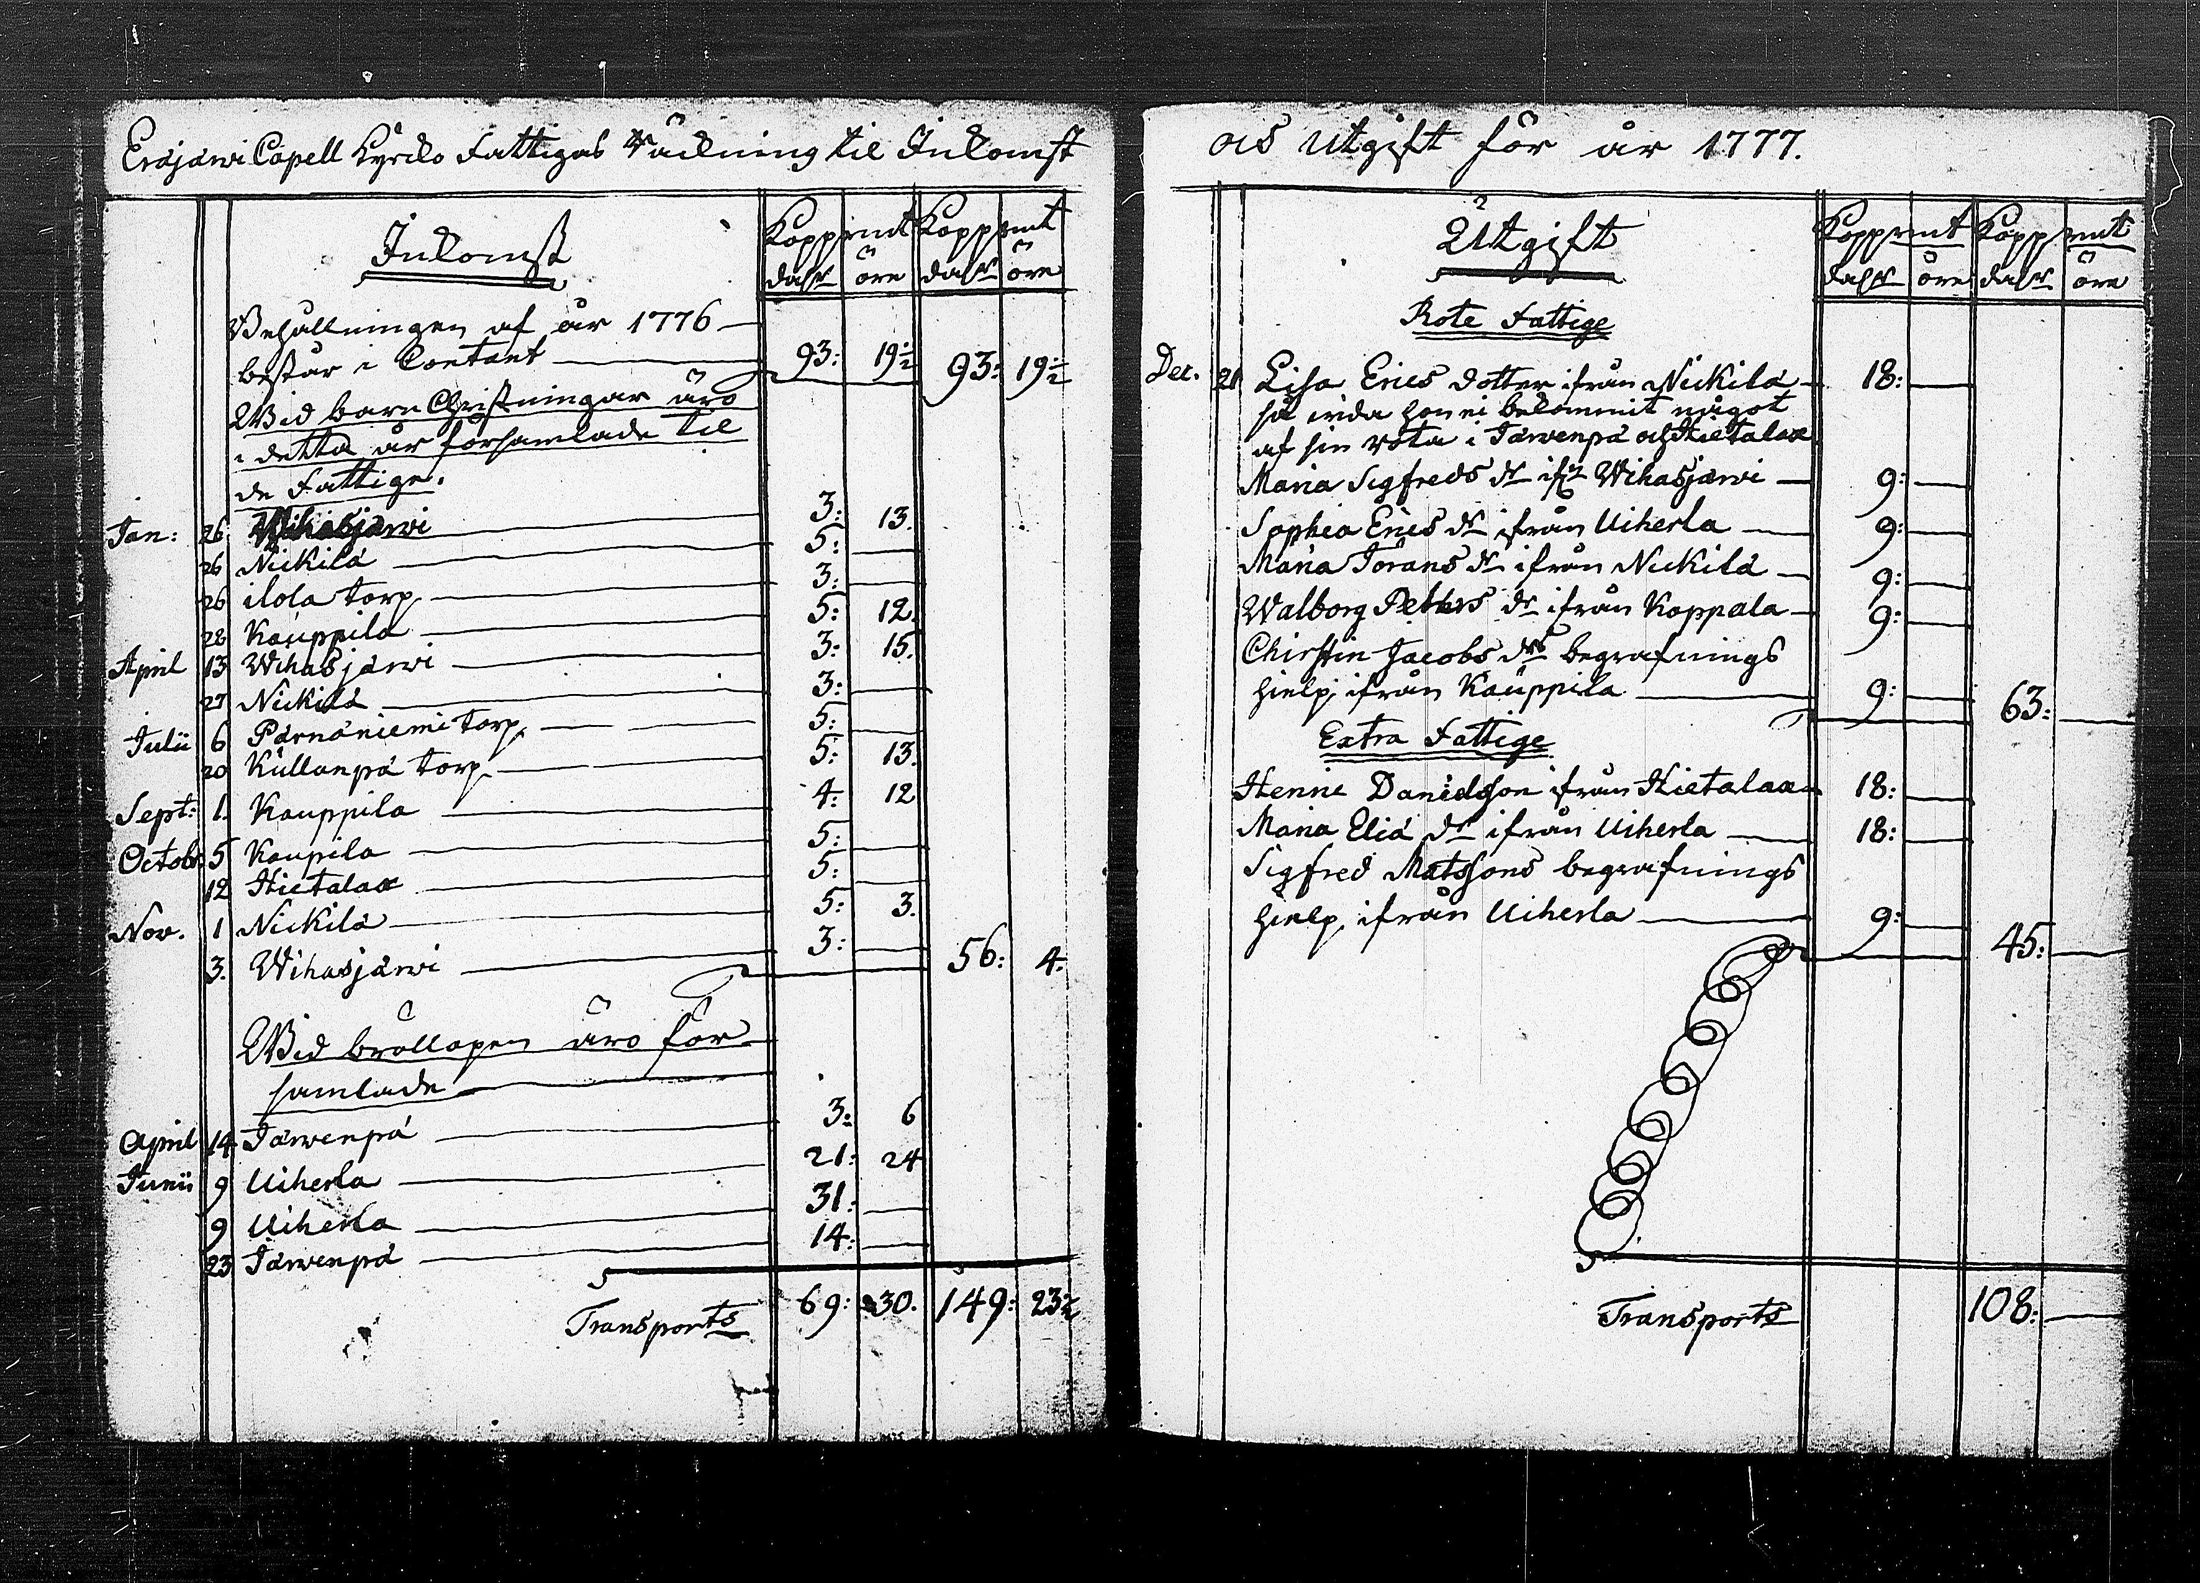 Eräjärwi Capell Kyrcko Fattigas Räckning til Inkomst
Inkomst
Koppmt Koppmt
dalr öre dalr öre
Behållningen af år 1776 —
består i Contant — 93: 19½ 93: 19½
Wid barn Christningar äro
i detta år församlade til
de Fattige.
Jan: 26. Wihasjärwi — 3: 13.
26 Nickilä — 5: —
26 ilola torp — 3: —
28 Kauppila — 5: 12.
April 13 Wihasjärwi — 3: 15.
27 Nickilä — 3: —
Julii 6 Pärnäniemi torp — 5: —
20 Kullanpä torp — 5: 13.
Sept: 1. Kauppila — 4: 12
Octobr 5 Kaupila — 5: —
12 Hietalax — 5: —
Nov. 1 Nickilä — 5: 3.
3. Wihasjärwi — 3: — 56: 4.
Wid bröllopen äro för
samlade —
April 14 Järwenpä — 3: 6
Junii 9 Uiherla — 21: 24
9 Uiherla — 31: —
23 Järwenpä — 14: —
Transports 69: 30. 149: 23½
och Utgift för år 1777.
Utgift
Koppmt Koppmt
dalr öre dalr öre
Rote Fattige
Dec. 21 Lisa Erics dotter ifrån Nickilä — 18: —
så enda hon ei bekommit något
af sin rota i Järwenpä och Hietalax
Maria Sigfreds dr ifrån Wihasjärwi — 9: —
Sophia Erics dr ifrån Uiherla — 9: —
Maria Jörans dr ifrån Nickilä — 9: —
Walborg Peters dr ifrån Koppala — 9: —
Chirstin Jacobs drs begrafnings
hielp ifrån Kauppila — 9: — 63: —
Extra Fattige
Henric Danielsson ifrån Hietalax — 18: —
Maria Eliä dr ifrån Uiherla — 18: —
Sigfred Matssons begrafnings
hielp ifrån Uiherla — 9: — 45: —
Transports 108: —